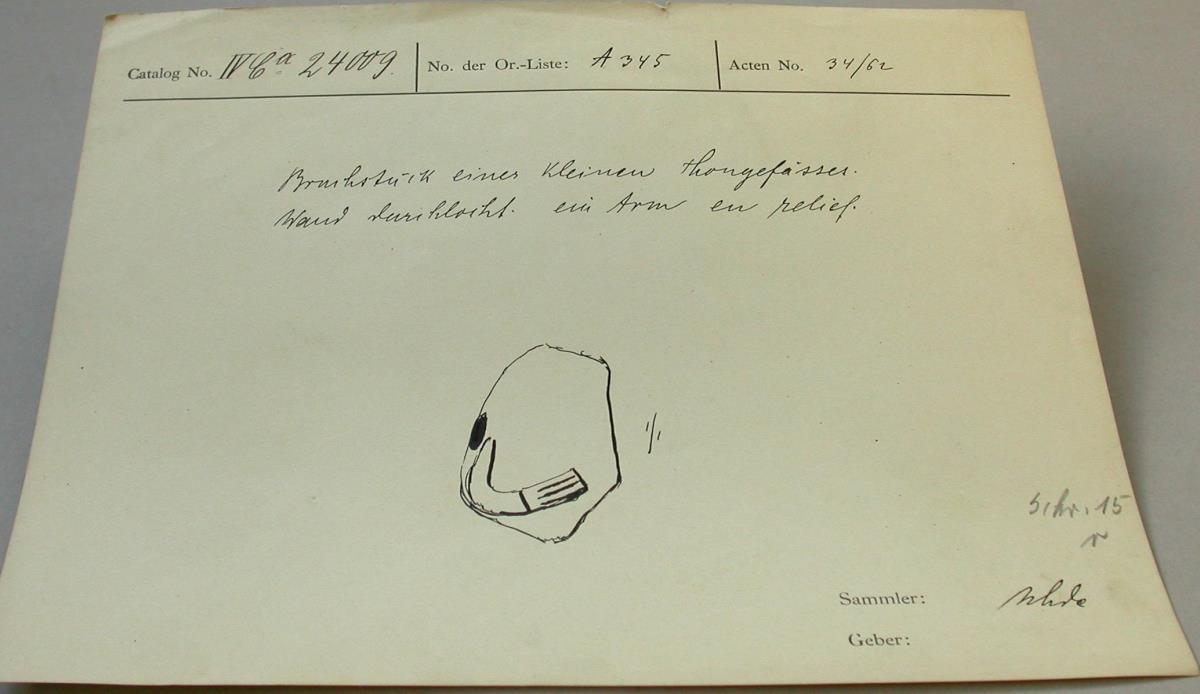 Catalog No. IV Ca 24009. No. der Or.-Liste: A 345 Acten No. 34/62
Bruchstück eines kleinen Thongefässes.
Wand durchlocht. ein Arm en relief.
1/1
Schr. 15
r
Sammler: Uhde
Geber: